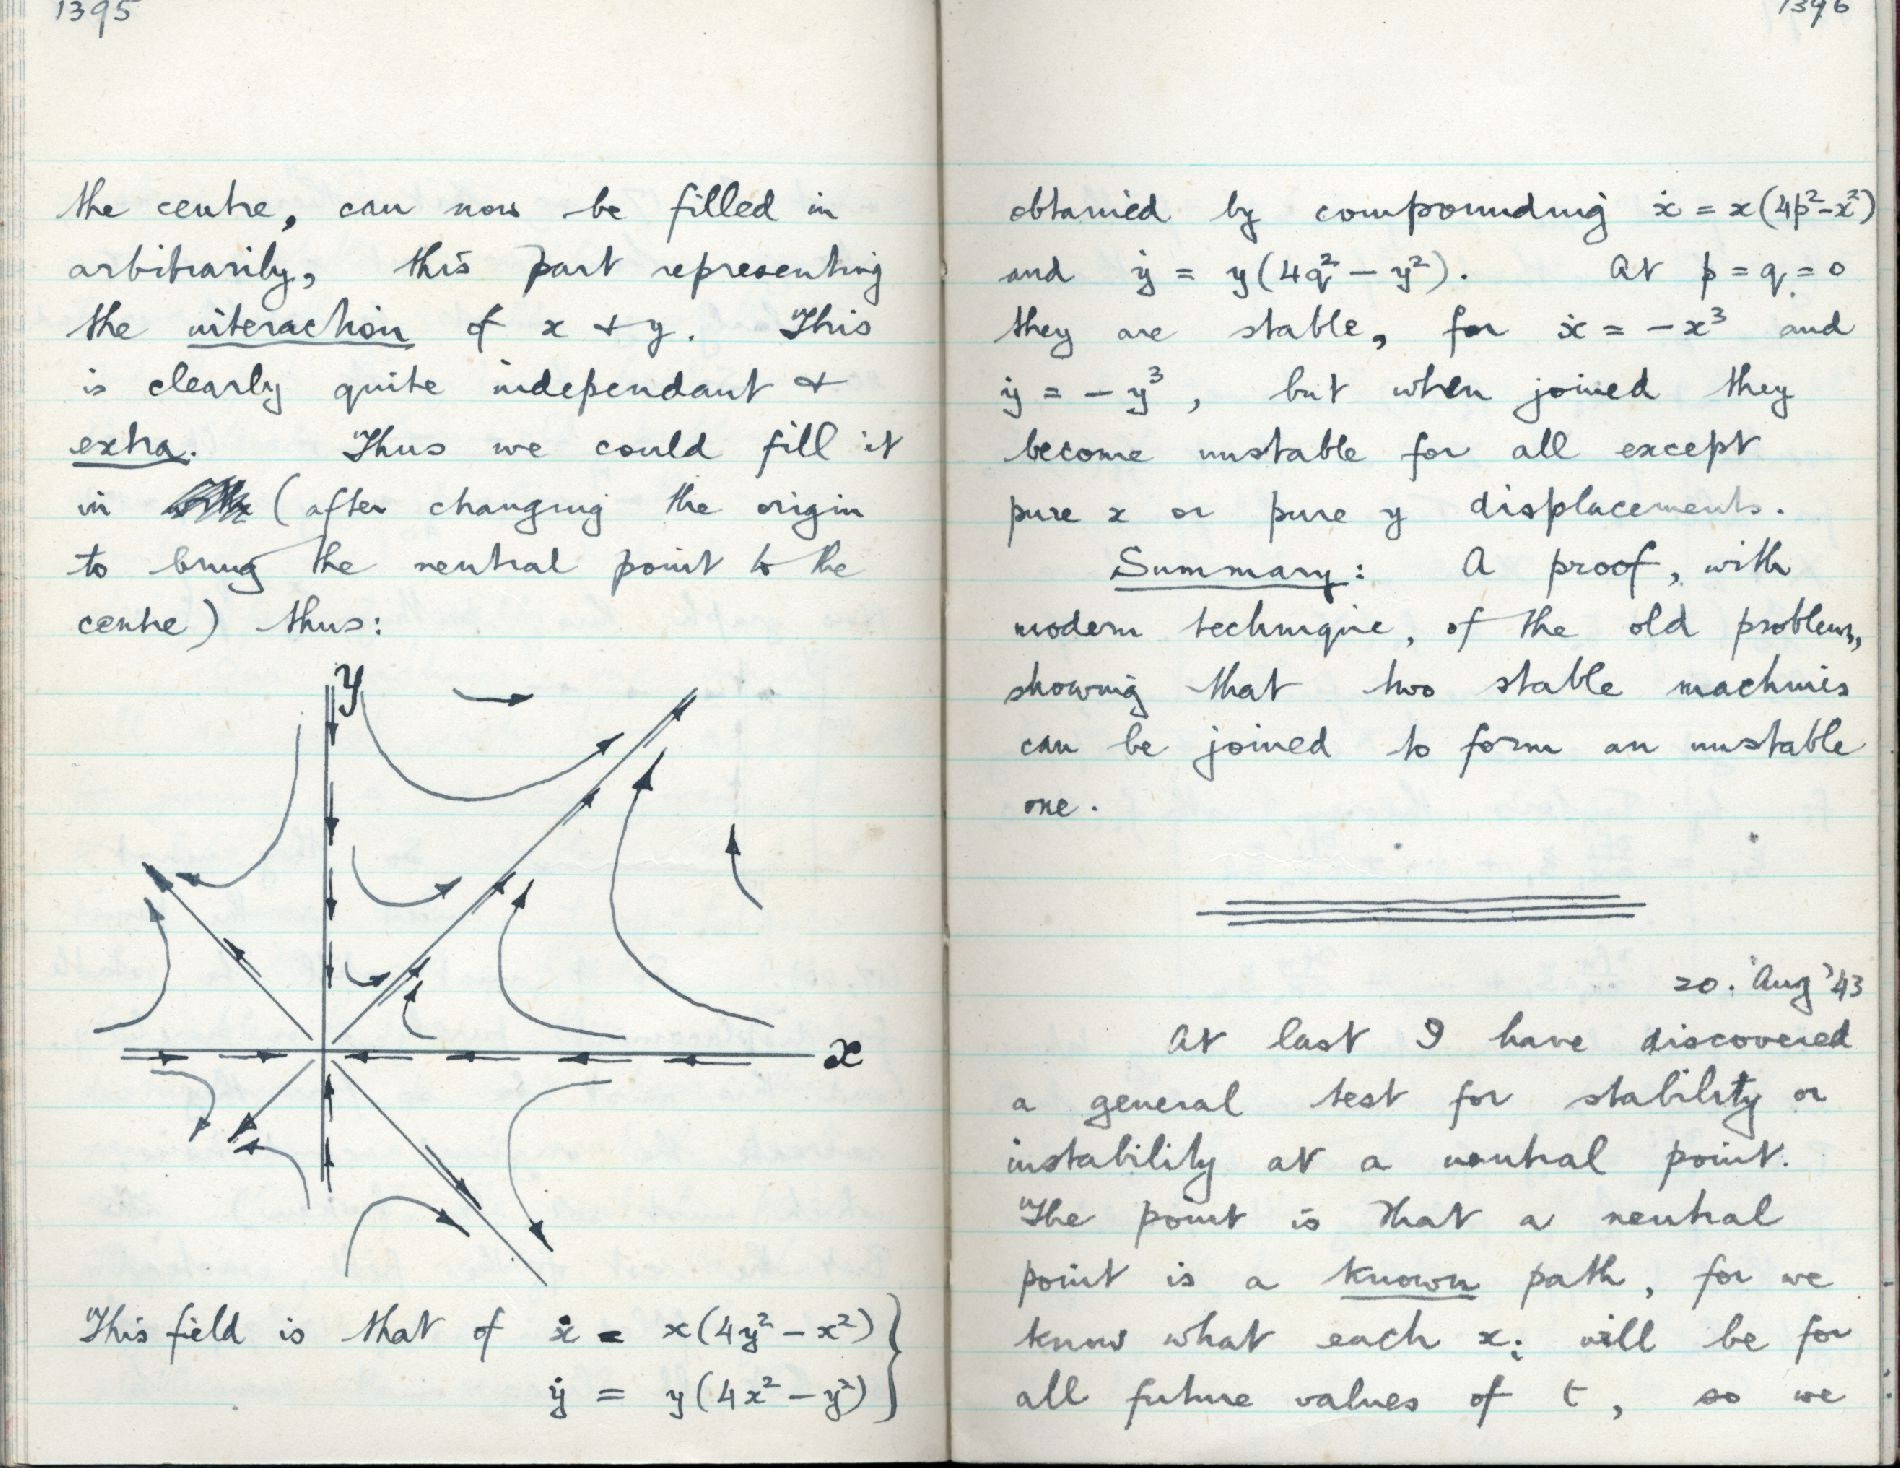 1395
the centre, can now be filled in
arbitrarily, this part representing
the interaction of x & y. This
is clearly quite independant &
extra. Thus we could fill it
in (after changing the origin
to bring the neutral point to the
centre) thus:
y
x
This field is that of ẋ = x(4y² - x²)
ẏ = y(4x² - y²)
1396
obtained by compounding ẋ = x(4p² - x²)
and ẏ = y(4q² - y²). At p = q = 0
they are stable, for ẋ = -x³ and
ẏ = -y³, but when joined they
become unstable for all except
pure x or pure y displacements.
Summary: A proof, with
modern technique, of the old problem,
showing that two stable machines
can be joined to form an unstable
one.
20. Aug '43
At last I have discovered
a general test for stability or
instability at a neutral point.
The point is that a neutral
point is a known path, for we
know what each xᵢ will be for
all future values of t, so we